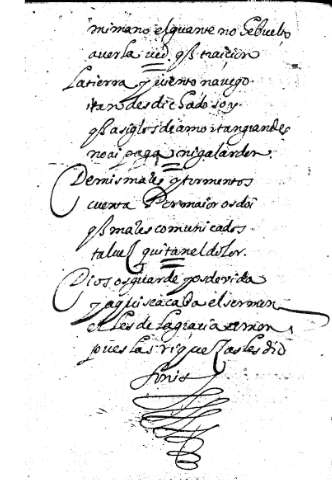 mi mano el guante no he buelto
a uerla ued q̃ traicion
La tierra y uiento nauego
i tan desdichado soy
q̃ a siglos de amo i tan grandes
no ai paga ni galardon.
De mis males y tormentos
cuenta Per maior os doi
q̃ males comunicados
tal uez quitan el dolor.
Dios os guarde y os de vida
y aqui se acaba el sermon
el les de la gracia amon
pues las riquezas les dio
finis